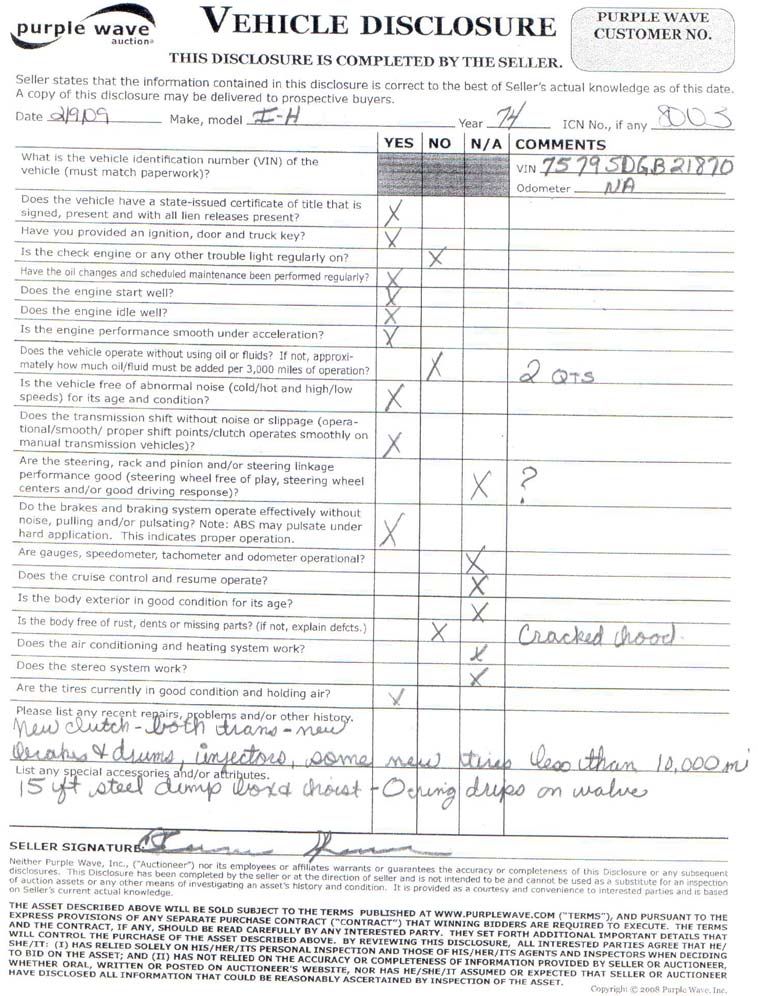 purple wave
auction®
VEHICLE DISCLOSURE
PURPLE WAVE
CUSTOMER NO.
THIS DISCLOSURE IS COMPLETED BY THE SELLER.
Seller states that the information contained in this disclosure is correct to the best of Seller's actual knowledge as of this date.
A copy of this disclosure may be delivered to prospective buyers.
Date 2/9/09 Make, model I-H Year 74 ICN No., if any 8003
YES NO N/A COMMENTS
What is the vehicle identification number (VIN) of the
vehicle (must match paperwork)?
VIN 75795DGB21870
Odometer NA
Does the vehicle have a state-issued certificate of title that is
signed, present and with all lien releases present? X
Have you provided an ignition, door and truck key? X
Is the check engine or any other trouble light regularly on? X
Have the oil changes and scheduled maintenance been performed regularly? X
Does the engine start well? X
Does the engine idle well? X
Is the engine performance smooth under acceleration? X
Does the vehicle operate without using oil or fluids? If not, approxi-
mately how much oil/fluid must be added per 3,000 miles of operation? X 2 QTS
Is the vehicle free of abnormal noise (cold/hot and high/low
speeds) for its age and condition? X
Does the transmission shift without noise or slippage (opera-
tional/smooth/ proper shift points/clutch operates smoothly on
manual transmission vehicles)? X
Are the steering, rack and pinion and/or steering linkage
performance good (steering wheel free of play, steering wheel
centers and/or good driving response)? X ?
Do the brakes and braking system operate effectively without
noise, pulling and/or pulsating? Note: ABS may pulsate under
hard application. This indicates proper operation. X
Are gauges, speedometer, tachometer and odometer operational? X
Does the cruise control and resume operate? X
Is the body exterior in good condition for its age? X
Is the body free of rust, dents or missing parts? (if not, explain defcts.) X Cracked hood.
Does the air conditioning and heating system work? X
Does the stereo system work? X
Are the tires currently in good condition and holding air? X
Please list any recent repairs, problems and/or other history.
New clutch - both trans - new
brakes & drums, injectors, some new tires less than 10,000 mi
List any special accessories and/or attributes.
15 ft steel dump box & hoist - O ring drips on valve
SELLER SIGNATURE
Neither Purple Wave, Inc., ("Auctioneer") nor its employees or affiliates warrants or guarantees the accuracy or completeness of this Disclosure or any subsequent
disclosures. This Disclosure has been completed by the seller or at the direction of seller and is not intended to be and cannot be used as a substitute for an inspection
of auction assets or any other means of investigating an asset's history and condition. It is provided as a courtesy and convenience to interested parties and is based
on Seller's current actual knowledge.
THE ASSET DESCRIBED ABOVE WILL BE SOLD SUBJECT TO THE TERMS PUBLISHED AT WWW.PURPLEWAVE.COM ("TERMS"), AND PURSUANT TO THE
EXPRESS PROVISIONS OF ANY SEPARATE PURCHASE CONTRACT ("CONTRACT") THAT WINNING BIDDERS ARE REQUIRED TO EXECUTE. THE TERMS
AND THE CONTRACT, IF ANY, SHOULD BE READ CAREFULLY BY ANY INTERESTED PARTY. THEY SET FORTH ADDITIONAL IMPORTANT DETAILS THAT
WILL CONTROL THE PURCHASE OF THE ASSET DESCRIBED ABOVE. BY REVIEWING THIS DISCLOSURE, ALL INTERESTED PARTIES AGREE THAT HE/
SHE/IT: (I) HAS RELIED SOLELY ON HIS/HER/ITS PERSONAL INSPECTION AND THOSE OF HIS/HER/ITS AGENTS AND INSPECTORS WHEN DECIDING
TO BID ON THE ASSET; AND (II) HAS NOT RELIED ON THE ACCURACY OR COMPLETENESS OF INFORMATION PROVIDED BY SELLER OR AUCTIONEER,
WHETHER ORAL, WRITTEN OR POSTED ON AUCTIONEER'S WEBSITE, NOR HAS HE/SHE/IT ASSUMED OR EXPECTED THAT SELLER OR AUCTIONEER
HAVE DISCLOSED ALL INFORMATION THAT COULD BE REASONABLY ASCERTAINED BY INSPECTION OF THE ASSET.
Copyright © 2008 Purple Wave, Inc.